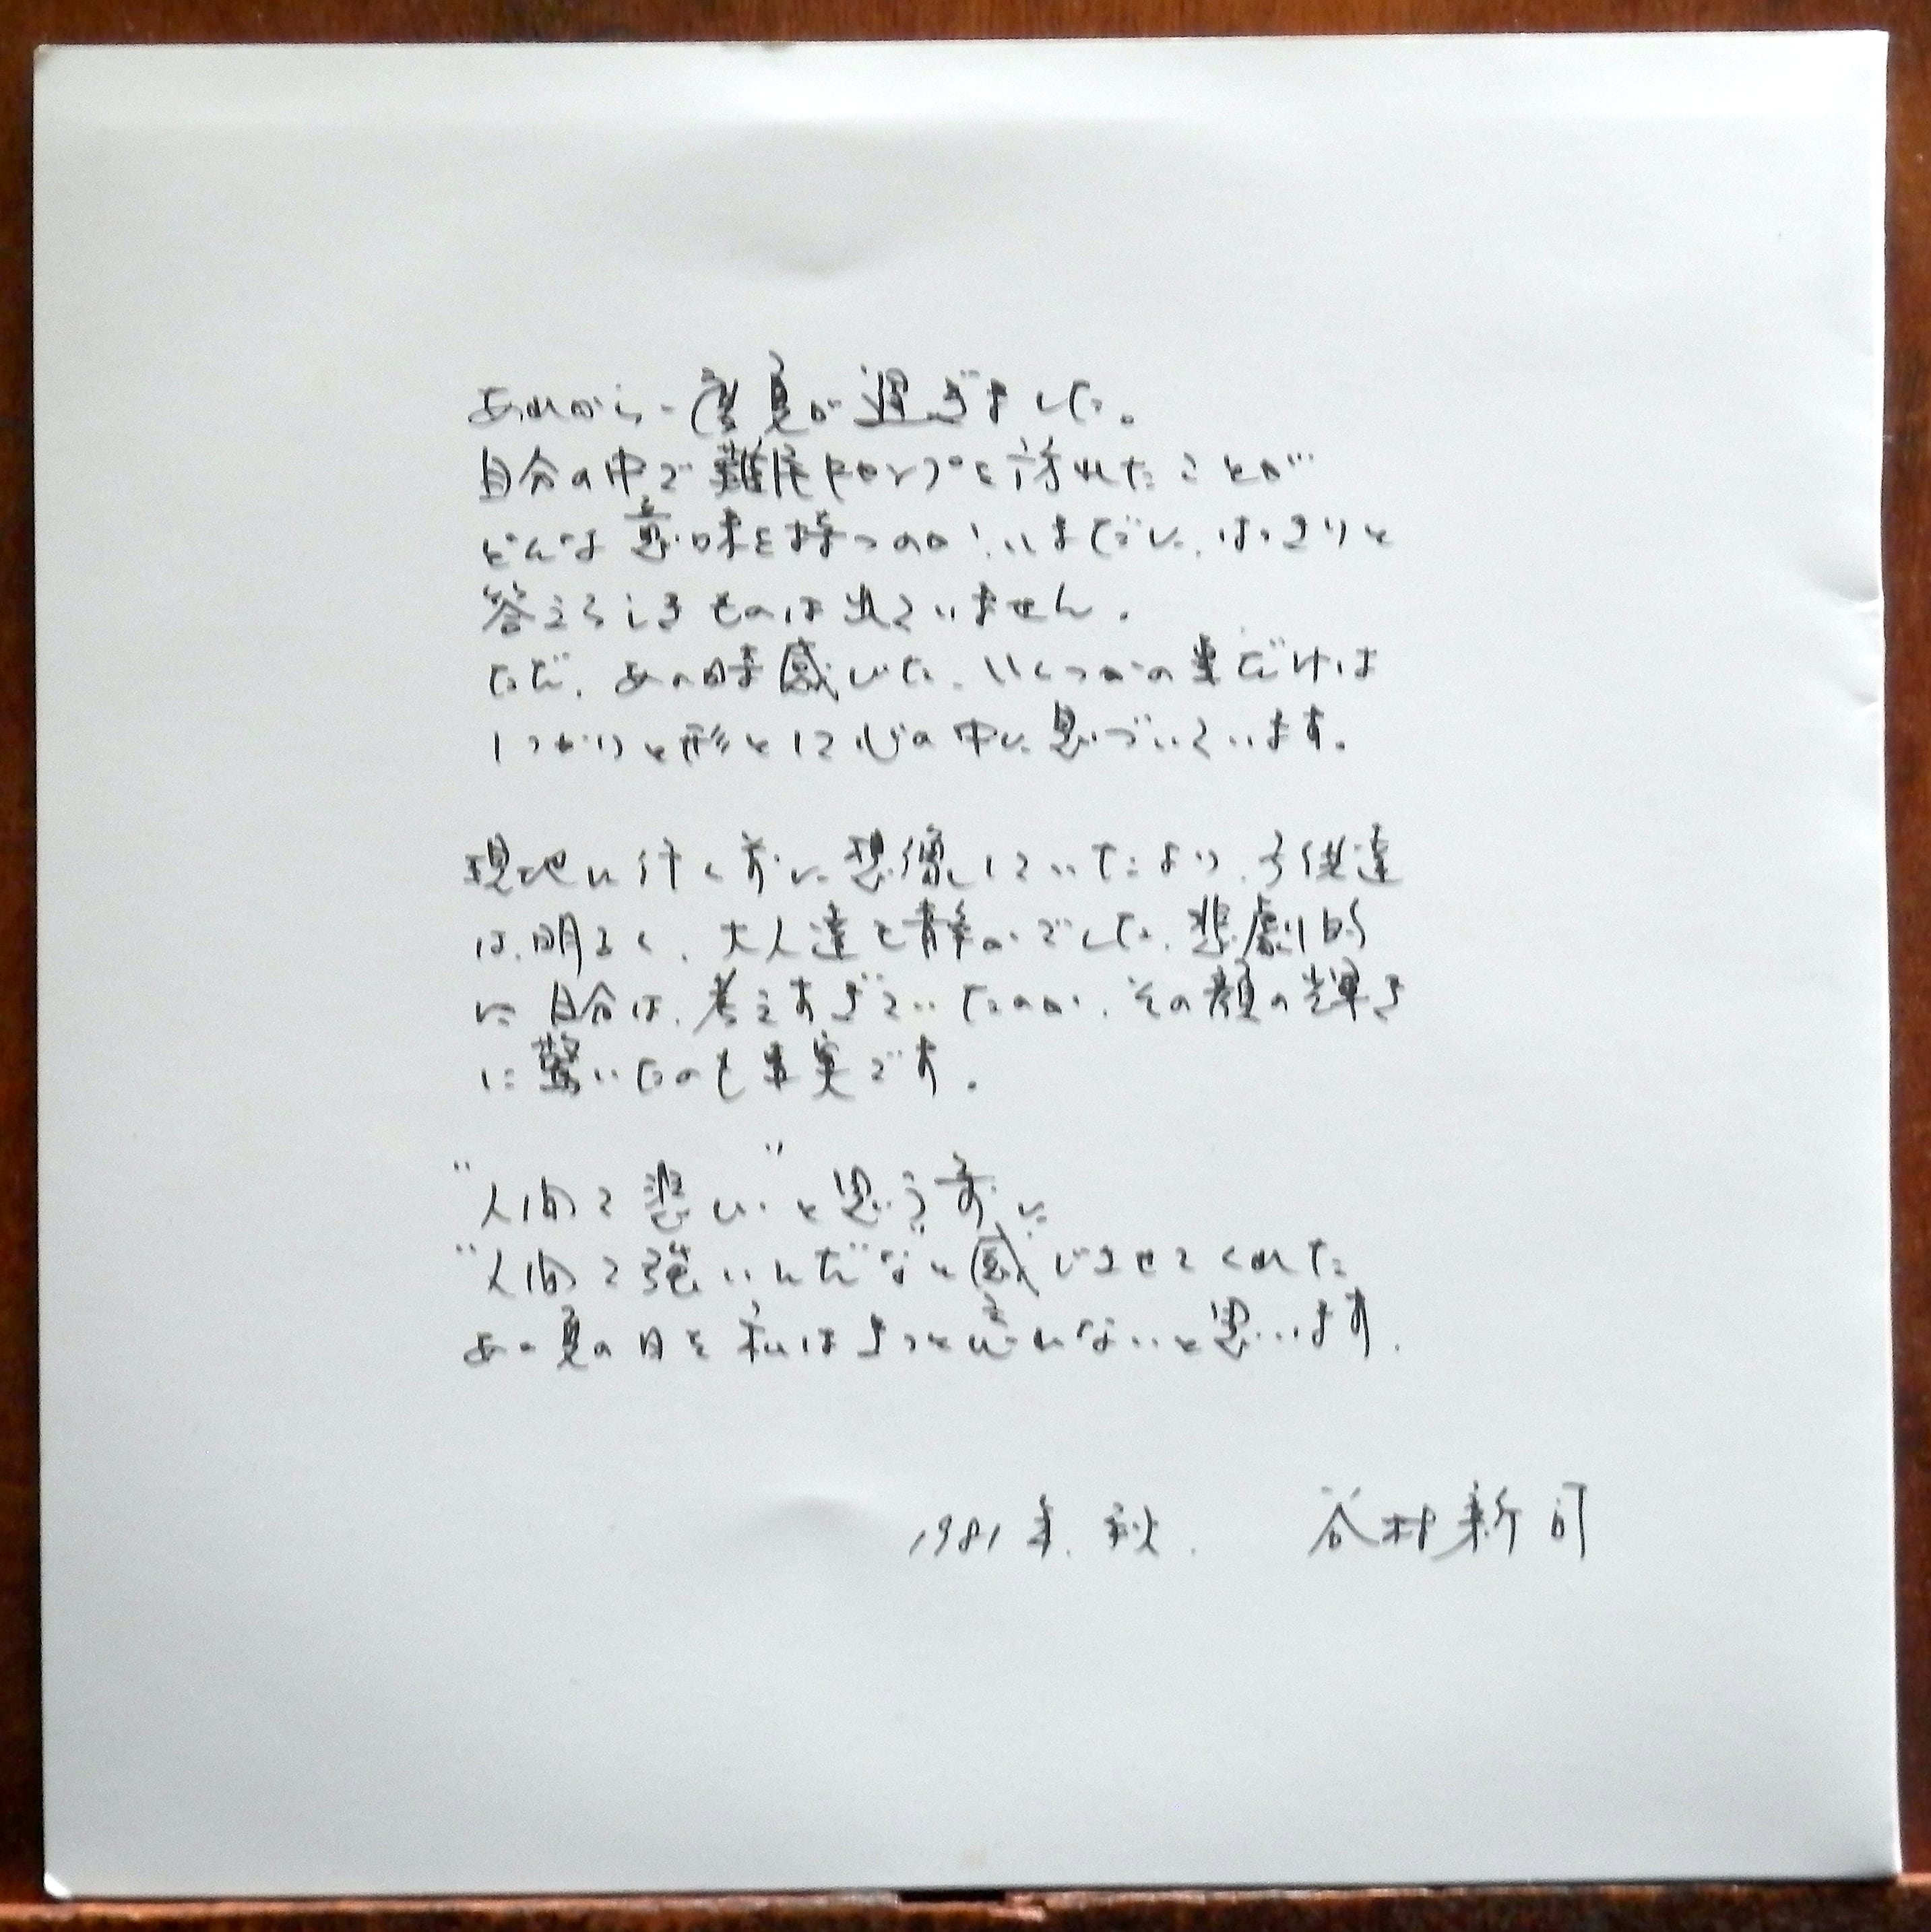 あれから一度夏が過ぎました。
自分の中で難民キャンプを訪れたことが
どんな意味を持つのか、いまだに、はっきりと
答えらしきものは出ていません。
ただ、あの時感じた、いくつかの事だけは
しっかりと形として心の中に息づいています。
現地に行く前に想像していたより、子供達
は、明るく、大人達も静かでした。悲劇的
に自分は、考えすぎていたのか、その顔の輝き
に驚いたのも事実です。
"人間て悲しい"と思う前に
"人間て強いんだ"なと感じさせてくれた
あの夏の日を私はきっと忘れないと思います。
1981年.秋. 谷村新司